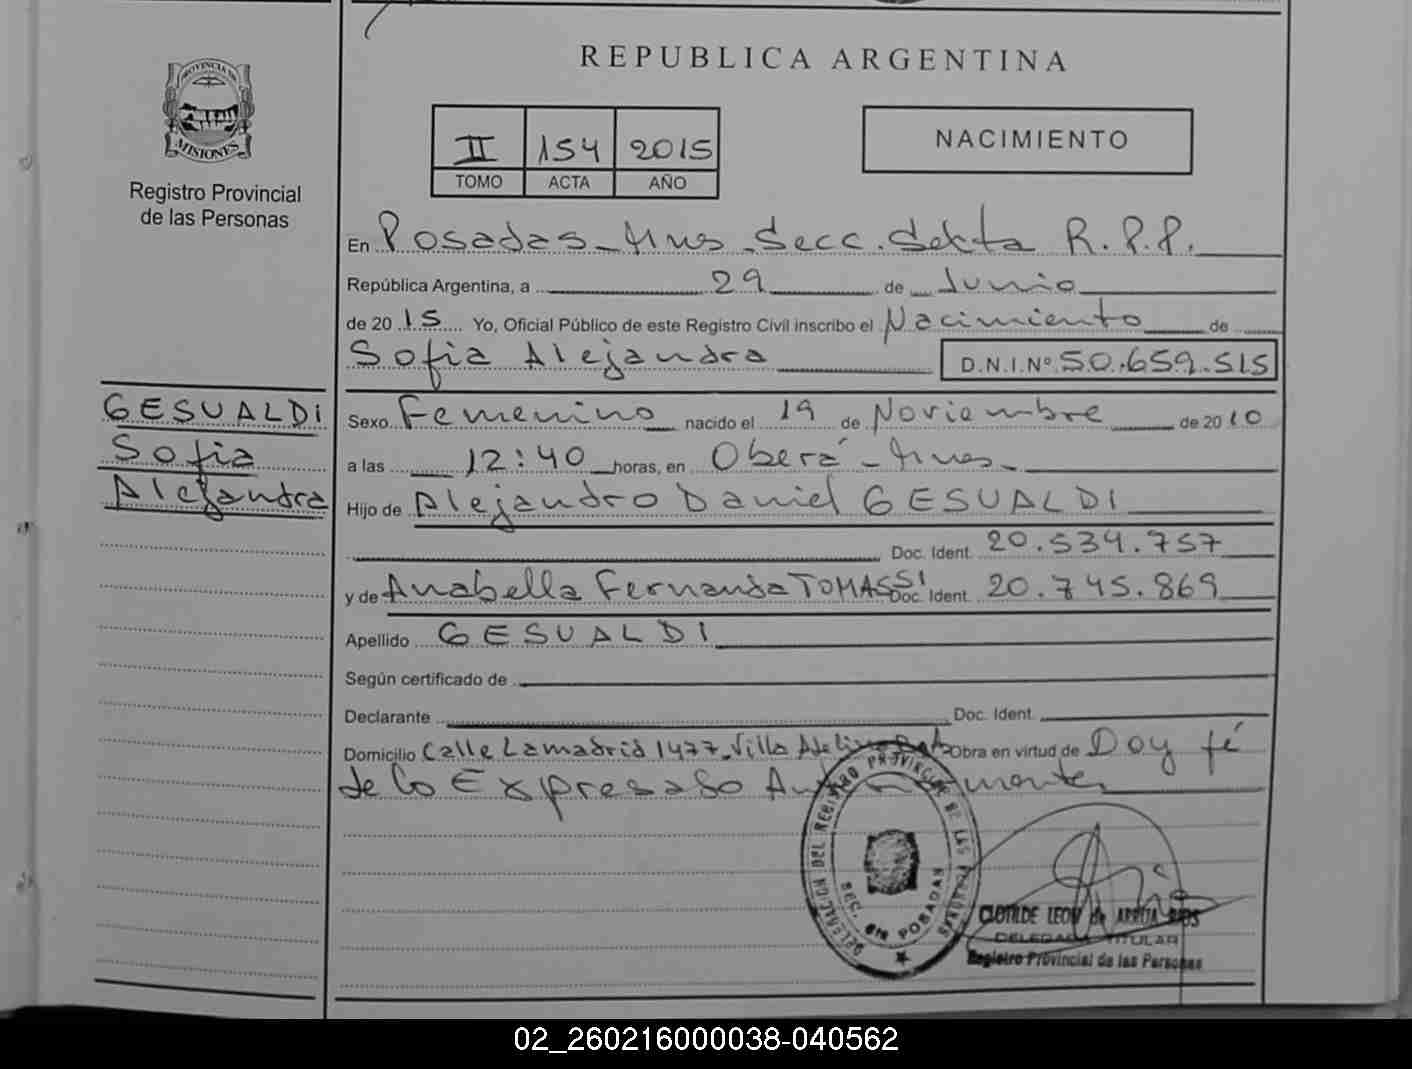 REPUBLICA ARGENTINA
PROVINCIA DE
MISIONES
Registro Provincial
de las Personas
II 154 2015
TOMO ACTA AÑO
NACIMIENTO
En Posadas - Mnes - Secc. Sexta R.P.P.
República Argentina, a 29 de Junio
de 2015 Yo, Oficial Público de este Registro Civil inscribo el Nacimiento de
Sofia Alejandra D.N.I.Nº 50.659.515
GESUALDI
Sofia
Alejandra
Sexo Femenino nacido el 19 de Noviembre de 2010
a las 12:40 horas, en Oberá - Mnes -
Hijo de Alejandro Daniel GESUALDI
Doc. Ident. 20.534.757
y de Anabella Fernanda TOMASSI Doc. Ident. 20.745.869
Apellido GESUALDI
Según certificado de
Declarante Doc. Ident.
Domicilio Calle Lamadrid 1477 - Villa Adelina Obra en virtud de Doy fé
de lo Expresado
DELEGACION DEL REGISTRO PROVINCIAL DE LAS PERSONAS
SEC. 6ta POSADAS
CLOTILDE LEON de
DELEGADA TITULAR
Registro Provincial de las Personas
02_260216000038-040562